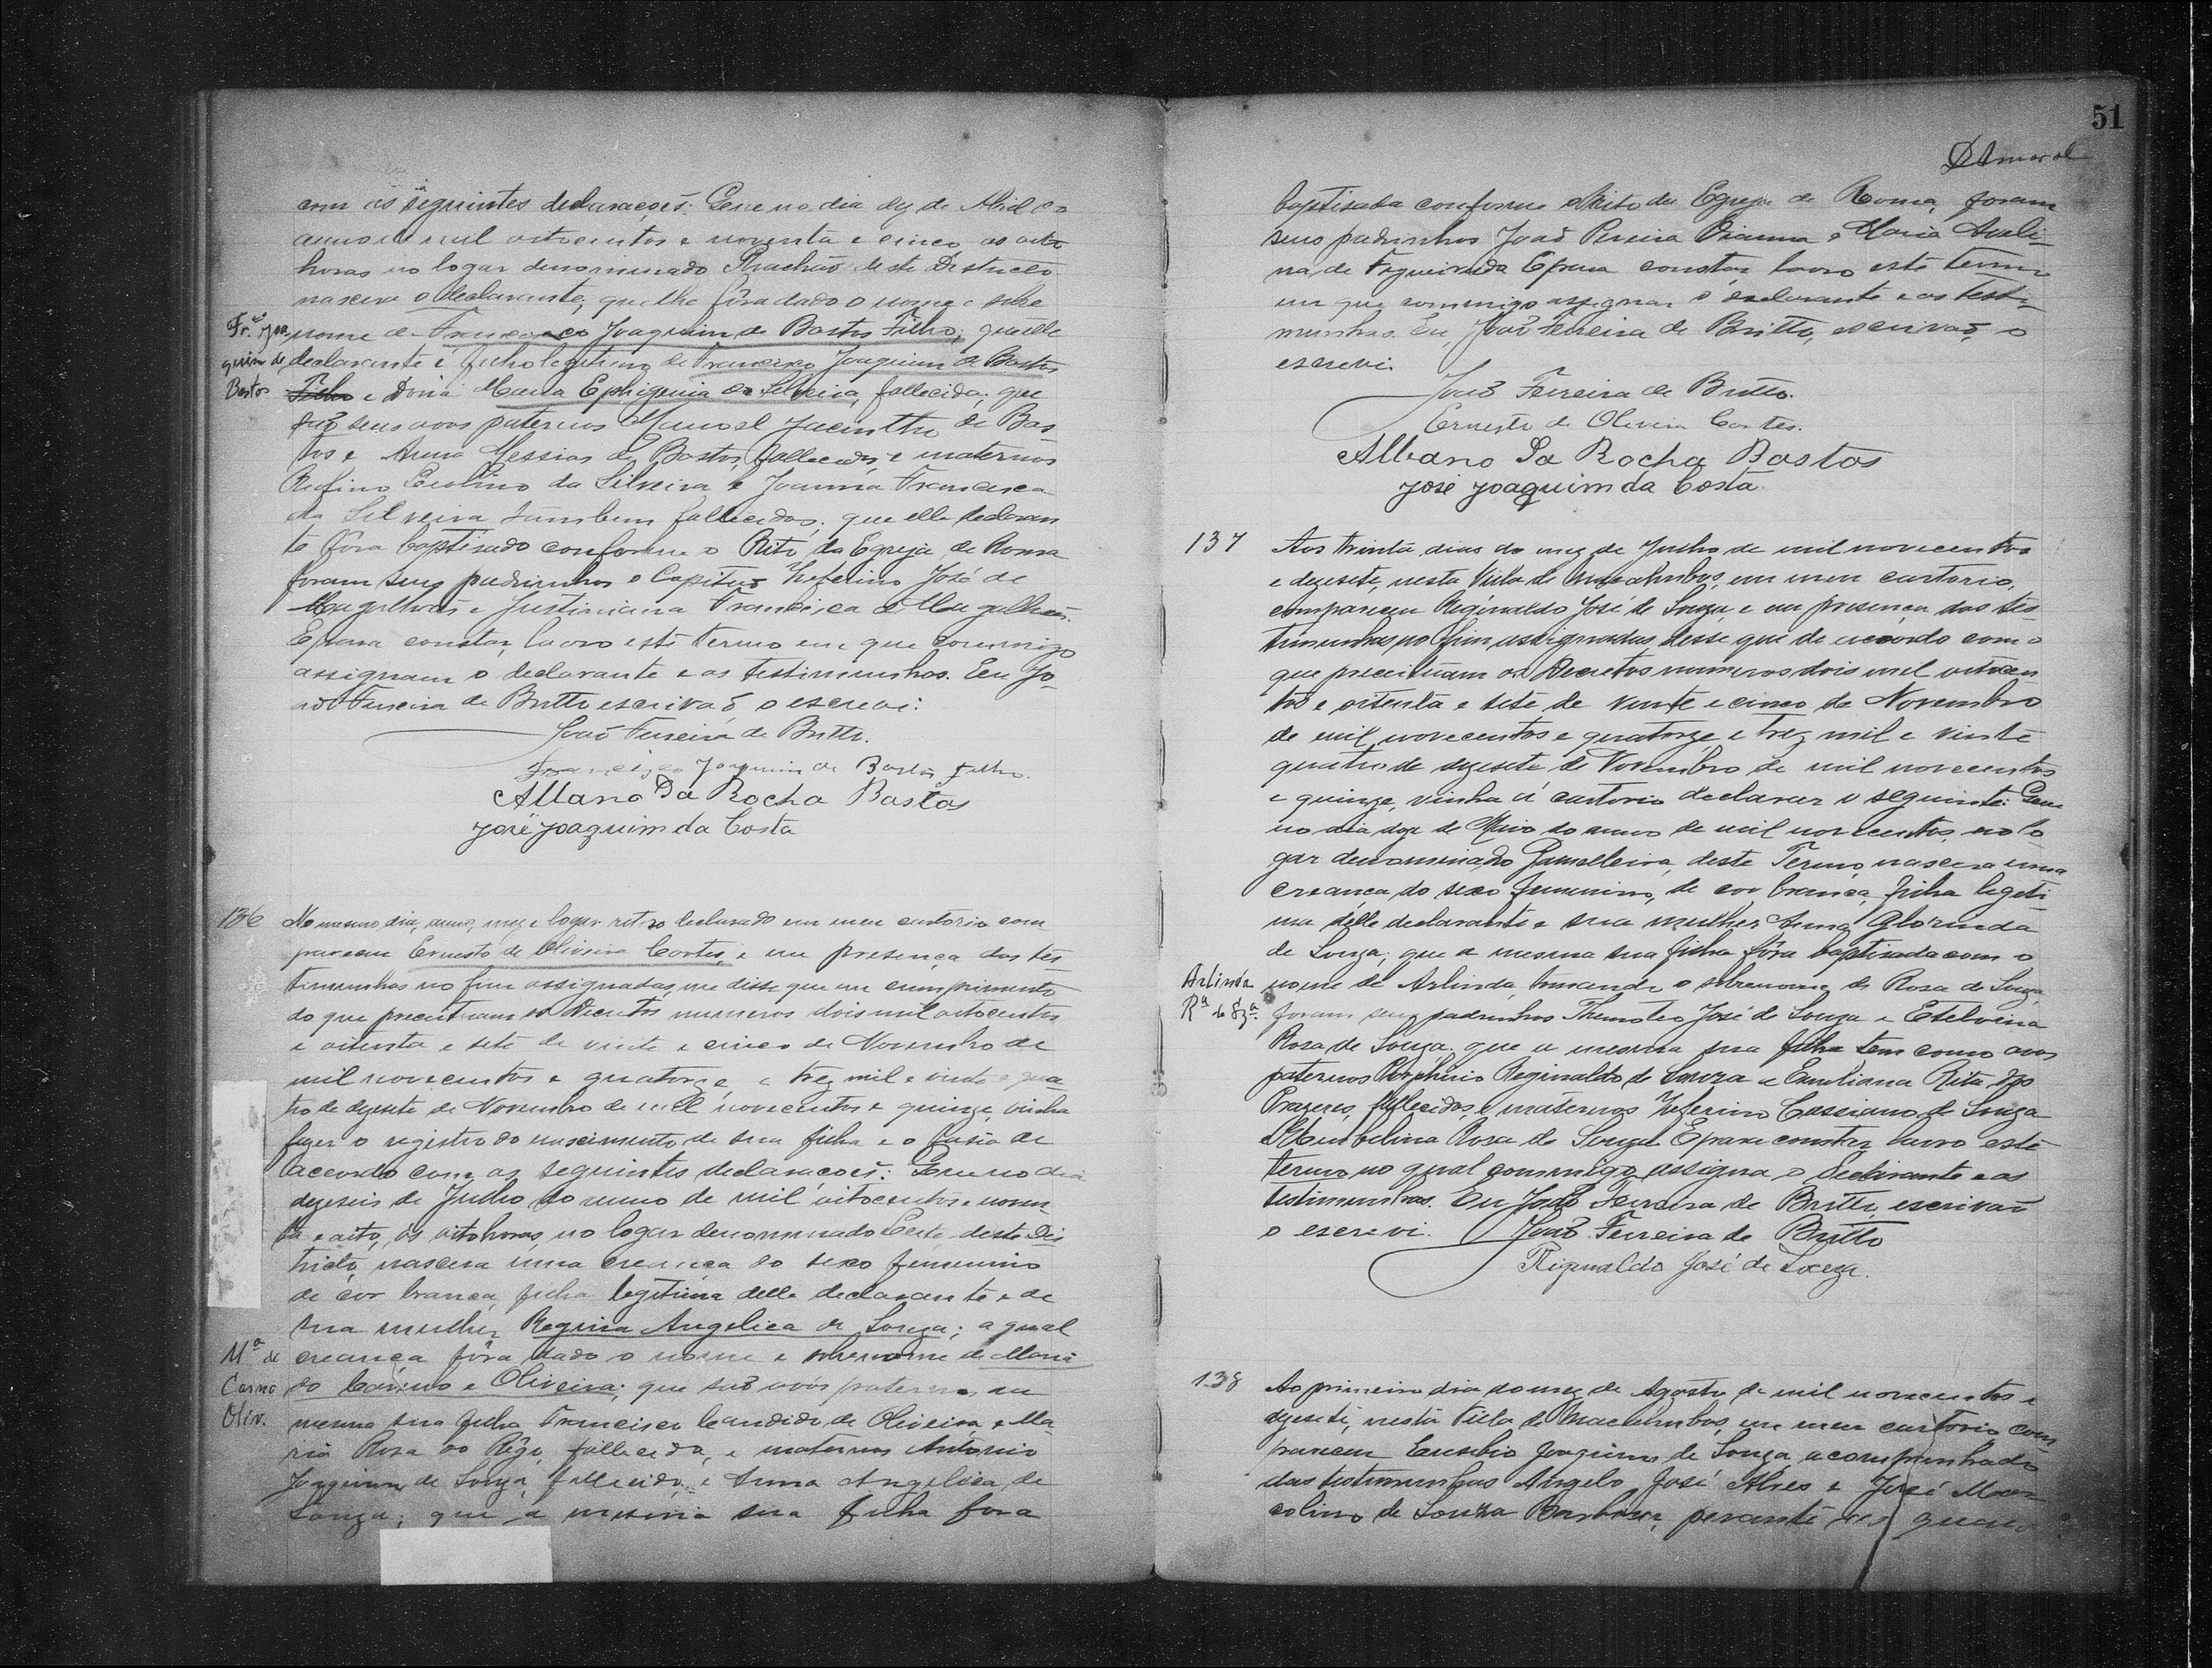 com as seguintes declaracoes: Que no dia dez de Abril do
anno de mil oitocentos e noventa e cinco, as oito
horas no logar denominado Riachão deste Destricto
nascera o declarante, que lhe fôra dado o nome e sobre
Fr.co Joa nome de Francisco Joaquim de Bastos Filho; que elle
quim de declarante é filho legitimo de Francisco Joaquim de Bastos
Bastos Filho e Dona Maria Ephigenia da Silveira, fallecida; que
são seus avos paternos Manoel Jacintho de Bas
tos e Anna Messias de Bastos, fallecidos, e maternos
Rufino da Silveira e Joanna Francisca
da Silveira tambem fallecidos; que elle declaran
te fôra baptisado conforme o Rito da Egreja de Roma
foram seus padrinhos o Capitão Zeferino José de
Magalhães e Justiniana Francisca de Magalhães.
E para constar, lavro este termo em que commigo
assignam o declarante e as testimunhas. Eu Jo-
ão Ferreira de Britto escrivaõ o escrevi.
João Ferreira de Britto.
Francisco Joaquim de Bastos Filho.
Albano Da Rocha Bastos
José Joaquim da Costa
136 No mesmo dia, anno, mez e logar retro declarado em meu cartorio com
pareceu Ernesto de Oliveira Cortes, e em presença das tes
timunhas no fim assignadas, me disse que em cumprimento
do que preceituam os Decretos numeros dois mil oitocentos
e oitenta e sete de vinte e cinco de Novembro de
mil novecentos e quatorze, e trez mil e vinte e qua
tro de dezesete de Novembro de mil novecentos e quinze, vinha
fazer o registro do nascimento de sua filha e o fasia de
accordo com as seguintes declaracoes: Que no dia
dezeseis de Julho do anno de mil oitocentos e noven
ta e oito, ás oito horas, no logar denominado deste Dis
tricto, nascera uma creança do sexo femenino
de côr branca, filha legitima delle declarante e de
sua mulher Regina Angelica de Souza; a qual
Mª do creança fôra dado o nome e sobrenome de Maria
Carmo do Carmo e Oliveira; que saõ avós paternos da
Oliv. mesma sua filha Francisco Candido de Oliveira e Ma
ria Rosa do Rêgo, fallecida, e maternos Antonio
Joaquim de Souza, fallecido, e Anna Angelica de
Souza; que a mesma sua filha fora
51
D'Amaral
baptisada conforme o Rito da Egreja de Roma, foram
seus padrinhos João Pereira Vianna e Maria Aveli-
na de Figueireda. E para constar lavro este termo
em que commigo assignam o declarante e as testi-
munhas. Eu, João Ferreira de Britto, escrivaõ, o
escrevi.
João Ferreira de Britto.
Ernesto de Oliveira Cortes.
Albano Da Rocha Bastos
José Joaquim da Costa.
137 Aos trinta dias do mez de Julho de mil novecentos
e dezesete, nesta Villa de Macahubas, em meu cartorio,
compareceu Reginaldo José de Souza, e em presença das tes
timunhas no fim assignadas, disse que de accordo com o
que preceituam os Decretos numeros dois mil oitocen
tos e oitenta e sete de vinte e cinco de Novembro
de mil novecentos e quatorze, e trez mil e vinte
quatro de dezesete de Novembro de mil novecentos
e quinze, vinha á cartorio declarar o seguinte: Que
no dia doze de Maio do anno de mil novecentos, no lo
gar denominado Gamelleira, deste Termo, nascera uma
creança, do sexo femenino, de cor branca, filha legeti
ma delle declarante e sua mulher Anna Glorinda
de Souza; que a mesma sua filha fôra baptisada com o
Arlinda nome de Arlinda, tomando o sobrenome de Rosa de Souza
Rª de Sza. foram seus padrinhos Themoteo José de Souza e Etelvina
Rosa de Souza; que a mesma sua filha tem como avos
paternos Porphirio Reginaldo de Souza e Emiliana Rita dos
Prazeres, fallecidos, e maternos Zeferino Cassiano de Souza
e Umbelina Rosa de Souza. E para constar lavro este
termo no qual commigo assigna o declarante e as
testimunhas. Eu João Ferreira de Britto, escrivaõ
o escrevi. João Ferreira de Britto
Riginaldo José de Souza.
138 Ao primeiro dia do mez de Agosto de mil novecentos e
dezesete, nesta Villa de Macahubas, em meu cartorio com
pareceu Eusebio Joaquim de Souza, acompanhado
das testimunhas Angelo José Alves e José Mar
colino de Souza Barbosa, perante as quaes